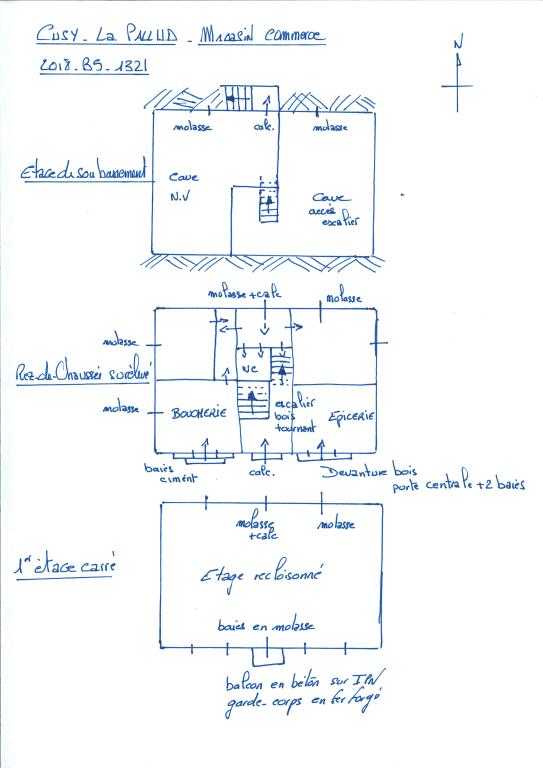 CUSY - LA PALLUD - MAGASIN COMMERCE
2018-BS-1321
N
molasse
calc.
molasse
Etage de soubassement
Cave
N.V
Cave
accès
escalier
molasse+calc
molasse
molasse
Rez-de-Chaussée surélevé
WC
molasse
BOUCHERIE
escalier
bois
tournant
EPICERIE
baies
ciment
calc.
Devanture bois
porte centrale +2 baies
molasse
+calc
molasse
1er étage carré
Etage recloisonné
baies en molasse
balcon en béton sur IPN
garde-corps en fer forgé